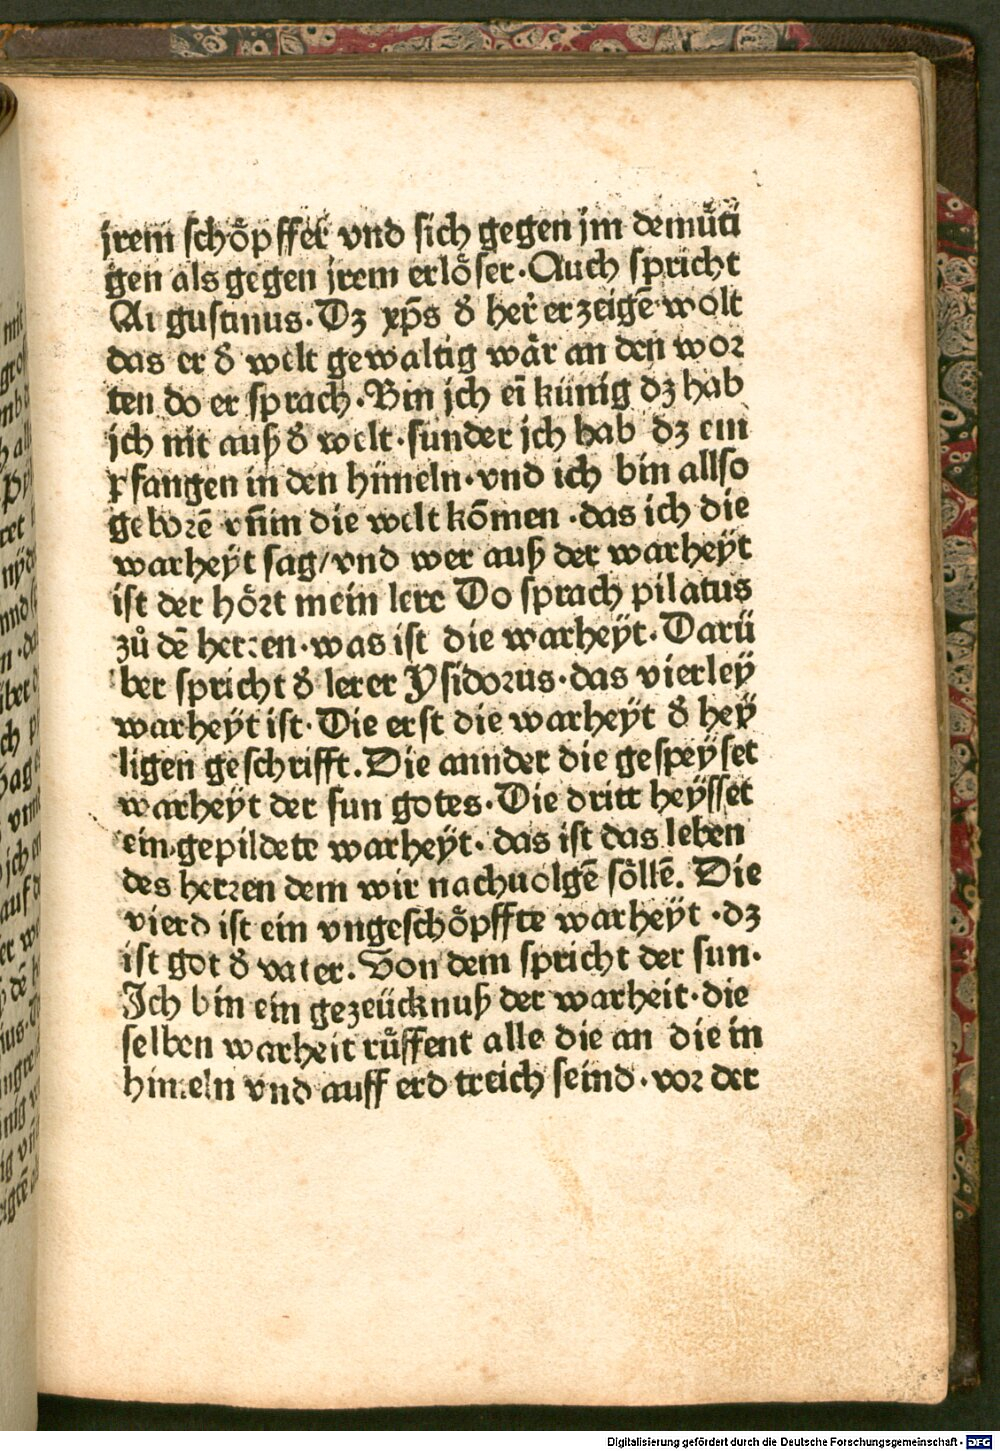 jrem schoͤpffer vnd sich gegen jm demuͤti
gen als gegen jrem erloͤser·Auch spricht
Augustinus·Dz xp̄s đ her̄ erzeigē wolt
das er đ welt gewaltig waͤr an den wor
ten do er sprach·Bin ich eī künig dz hab
ich nit auß đ welt·sunder ich hab dz em
pfangen in den himeln·vnd ich bin allso
geborē vn̄ in die welt kōmen·das ich die
warheÿt sag/vnd wer auß der warheÿt
ist der hoͤrt mein lere Do sprach pilatus
zů dē herren·was ist die warheÿt·Darü
ber spricht đ lerer Ysidorus·das vierleÿ
warheÿt ist·Die erst die warheÿt đ heÿ
ligen geschrifft.Die annder die gespeÿset
warheÿt der sun gotes·Die dritt heÿsset
ein gepildete warheÿt·das ist das leben
des herren dem wir nachuolgē soͤllē.Die
vierd ist ein vngeschoͤpffte warheÿt·dz
ist got đ vater.Von dem spricht der sun·
Ich bin ein gezeücknuß der warheit·die
selben warheit ruͤffent alle die an die in
himeln vnd auff erdtreich seind·vor der
Digitalisierung gefördert durch die Deutsche Forschungsgemeinschaft - DFG